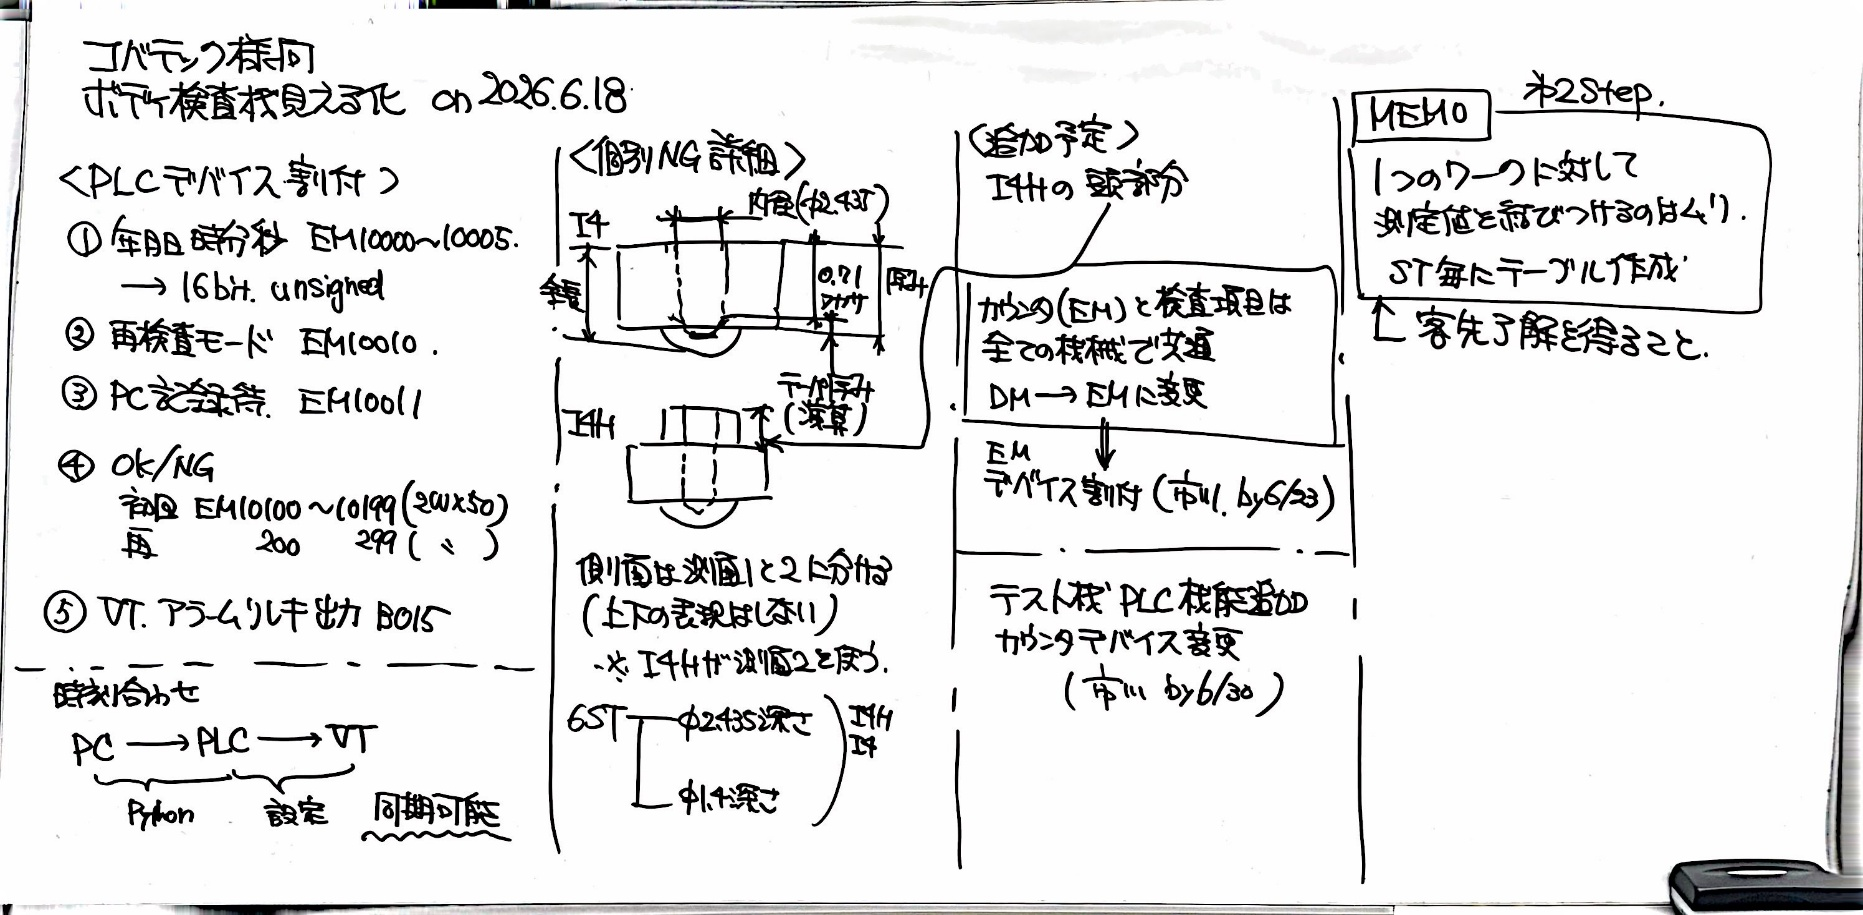 コバテック様向
ボディ検査機見える化 on 2026.6.18
<PLCデバイス割付>
① 年月日時分秒 EM10000~10005.
→ 16bit. unsigned
② 再検査モード EM10010.
③ PC記録待. EM10011
④ OK/NG
初回 EM10100~10199(2W×50)
再 200 299(〃)
⑤ VT. アラームリレキ出力 B015
時刻合わせ
PC → PLC → VT
Python 設定 同期可能
<個別NG詳細>
I4
内径(φ2.435)
全長
0.71
フカサ
厚み
テーパ厚み
(演算)
I4H
側面は測面1と2に分ける
(上下の表現はしない)
※ I4Hが測面2を使う.
6ST φ2.435深さ
φ1.4深さ
I4H
I4
<追加予定>
I4Hの頭部分
カウンタ(EM)と検査項目は
全ての機械で共通
DM→EMに変更
EM
デバイス割付(市川. by6/23)
テスト機 PLC機能追加
カウンタデバイス変更
(市川 by6/30)
MEMO
オ2Step.
1つのワークに対して
測定値を結びつけるのはムリ.
ST毎にテーブル作成
客先了解を得ること.